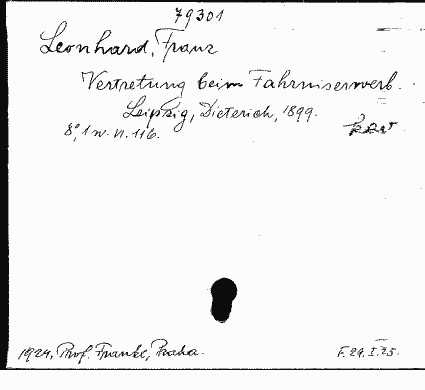 79301
Leonhard, Franz
Vertretung beim Fahrniserwerb.
Leipzig, Dieterich, 1899.
8°, 1 w. VI. 116.
1924, Prof. Franke, Praha.
F. 29. I. 25.